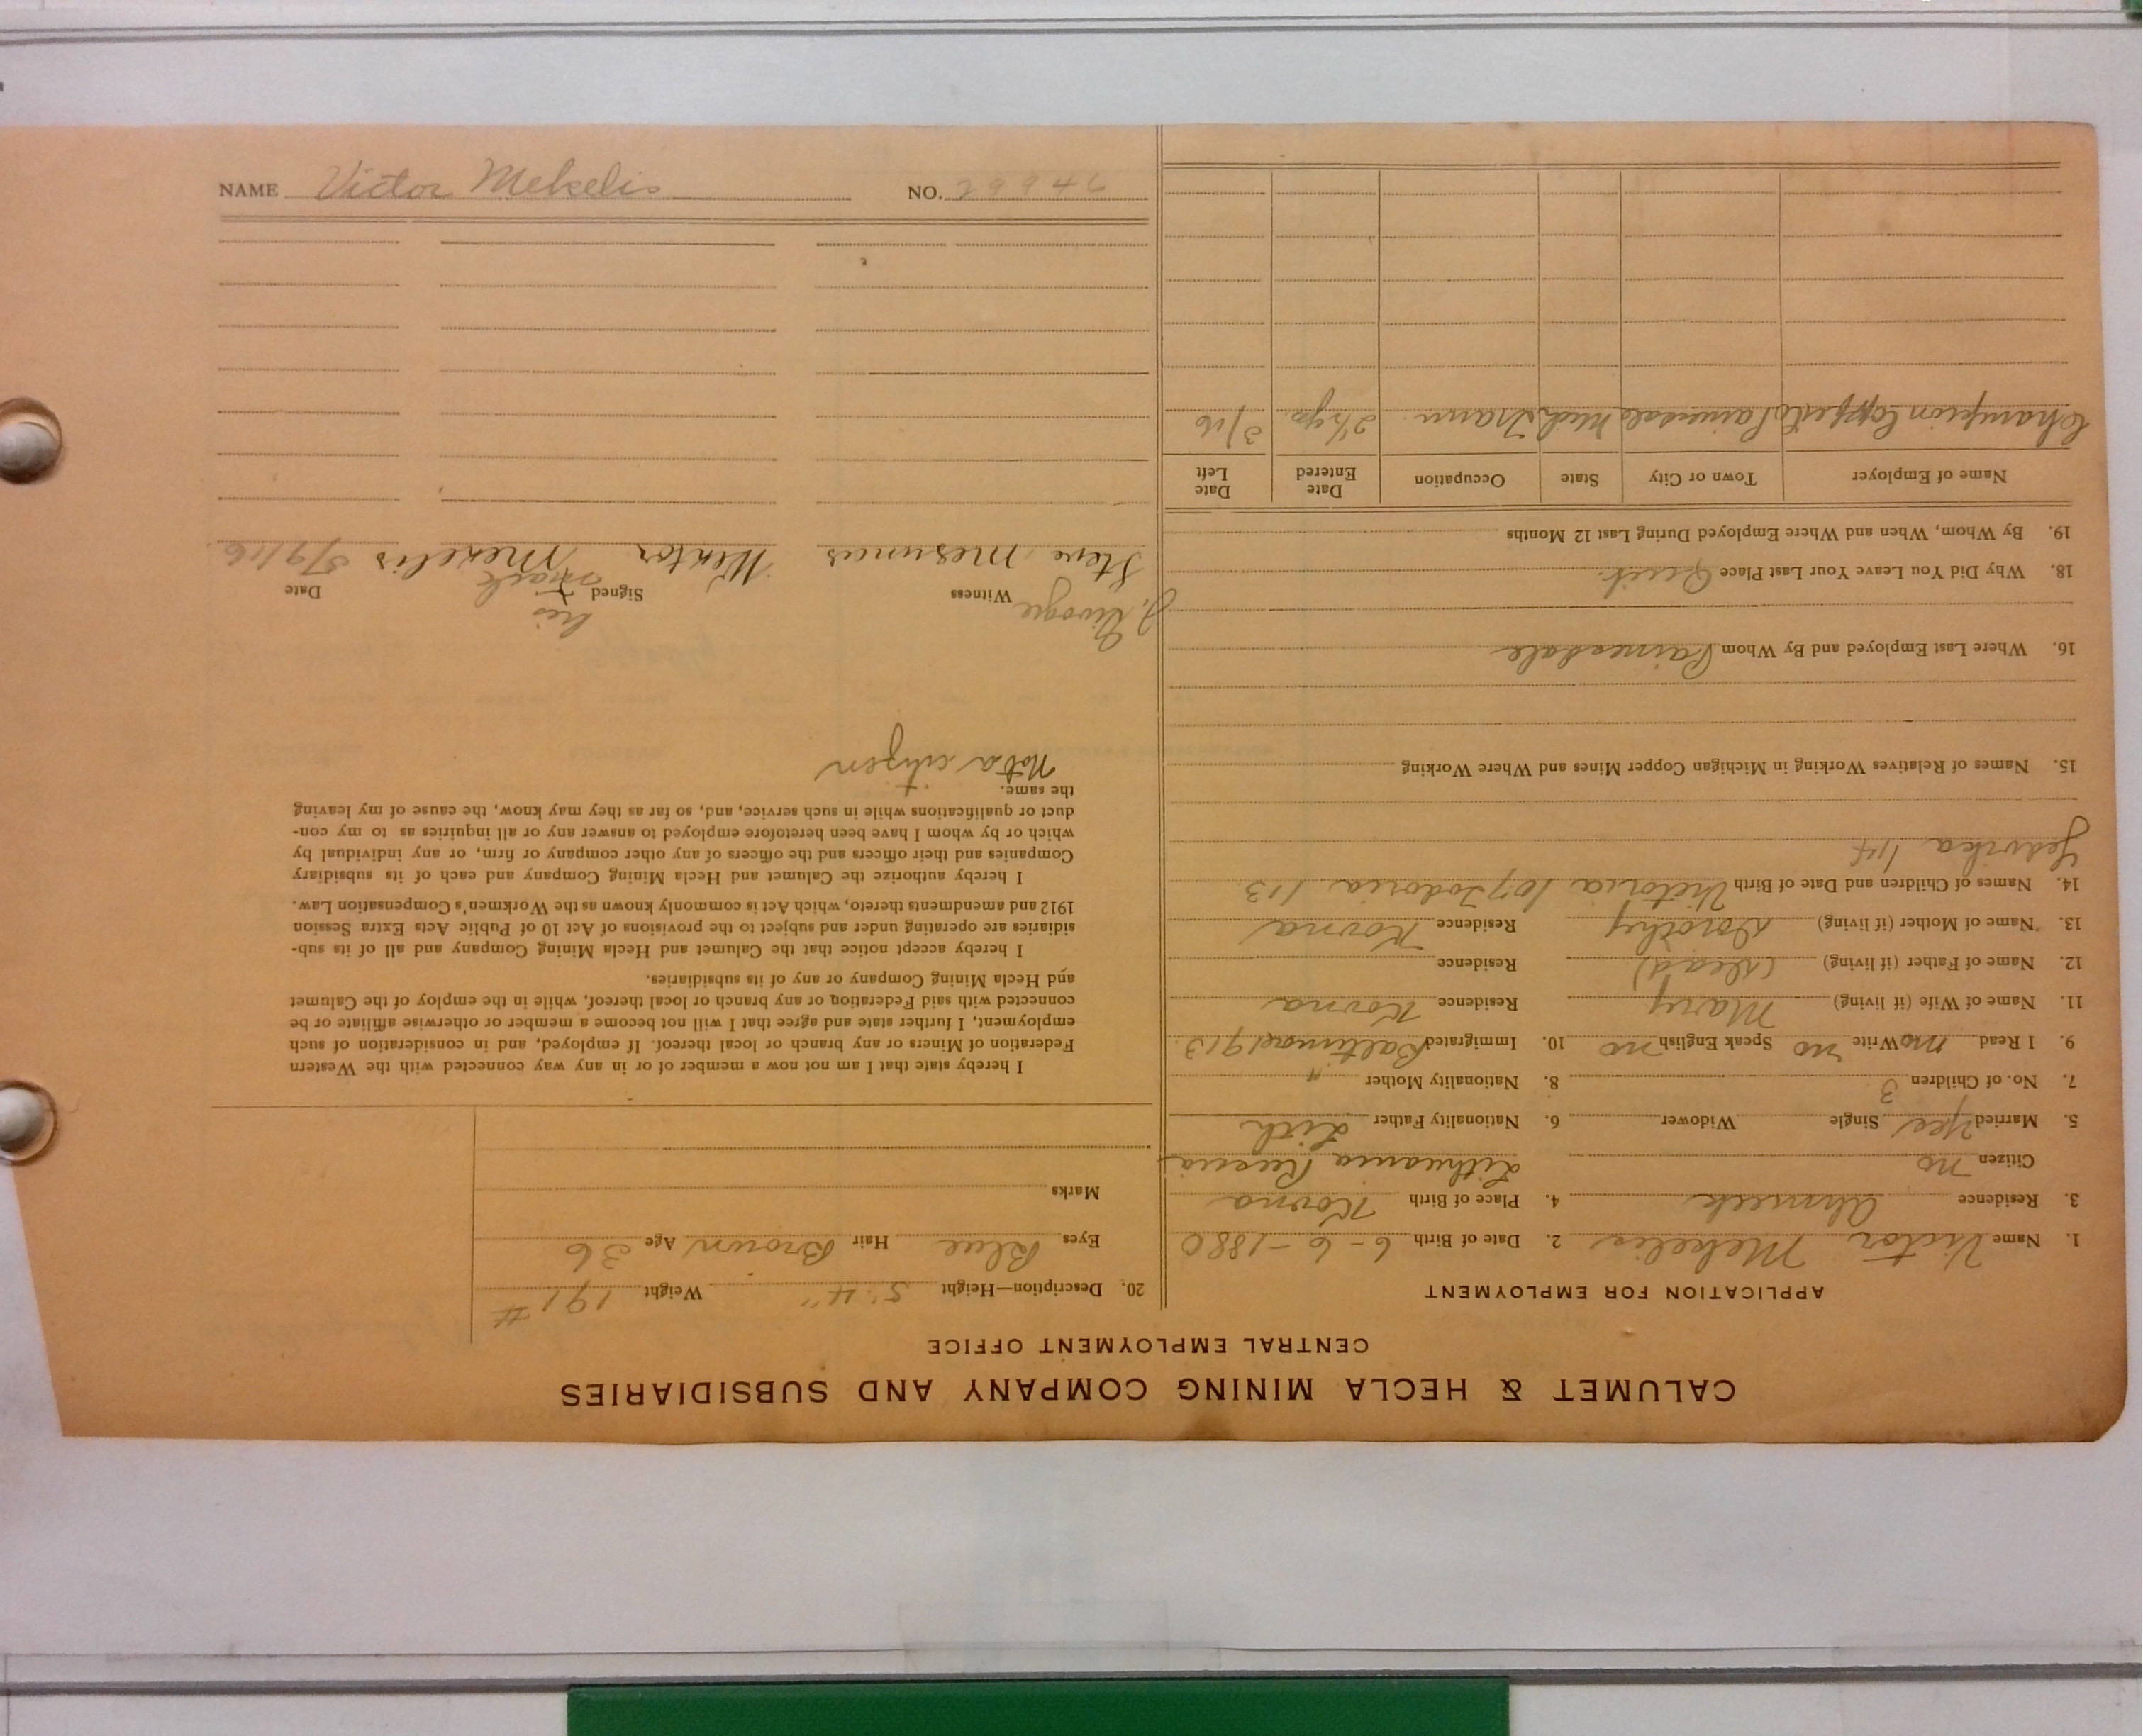 CALUMET & HECLA MINING COMPANY AND SUBSIDIARIES
CENTRAL EMPLOYMENT OFFICE
APPLICATION FOR EMPLOYMENT
1. Name Victor Mekelis 2. Date of Birth 6-6-1880
3. Residence Ahmeek 4. Place of Birth Kovna
Citizen no Lithuania Russia
5. Married Yes Single Widower 6. Nationality Father Lith
7. No. of Children 3 8. Nationality Mother "
9. I Read no Write no Speak English no 10. Immigrated Baltimore 1913
11. Name of Wife (if living) Mary Residence Kovna
12. Name of Father (if living) (dead) Residence
13. Name of Mother (if living) Dorothy Residence Kovna
14. Names of Children and Date of Birth Victoria 107 Fodoria 113
114
15. Names of Relatives Working in Michigan Copper Mines and Where Working
16. Where Last Employed and By Whom Painesdale
18. Why Did You Leave Your Last Place Quit.
19. By Whom, When and Where Employed During Last 12 Months
Name of Employer Town or City State Occupation Date Entered Date Left
Champion Copper Co Painesdale Mich Tram 2½ yrs 3/16
20. Description—Height 5' 4" Weight 191 #
Eyes Blue Hair Brown Age 36
Marks
I hereby state that I am not now a member of or in any way connected with the Western
Federation of Miners or any branch or local thereof. If employed, and in consideration of such
employment, I further state and agree that I will not become a member or otherwise affiliate or be
connected with said Federation or any branch or local thereof, while in the employ of the Calumet
and Hecla Mining Company or any of its subsidiaries.
I hereby accept notice that the Calumet and Hecla Mining Company and all of its sub-
sidiaries are operating under and subject to the provisions of Act 10 of Public Acts Extra Session
1912 and amendments thereto, which Act is commonly known as the Workmen's Compensation Law.
I hereby authorize the Calumet and Hecla Mining Company and each of its subsidiary
Companies and their officers and the officers of any other company or firm, or any individual by
which or by whom I have been heretofore employed to answer any or all inquiries as to my con-
duct or qualifications while in such service, and, so far as they may know, the cause of my leaving
the same.
Not a citizen
Witness Signed Date
his
x
mark
Steve Mesunas Wiktor Mekelis 5/9/16
NAME Victor Mekelis NO. 29946